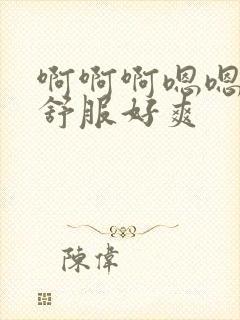 啊啊啊嗯嗯
舒服好爽
陳偉